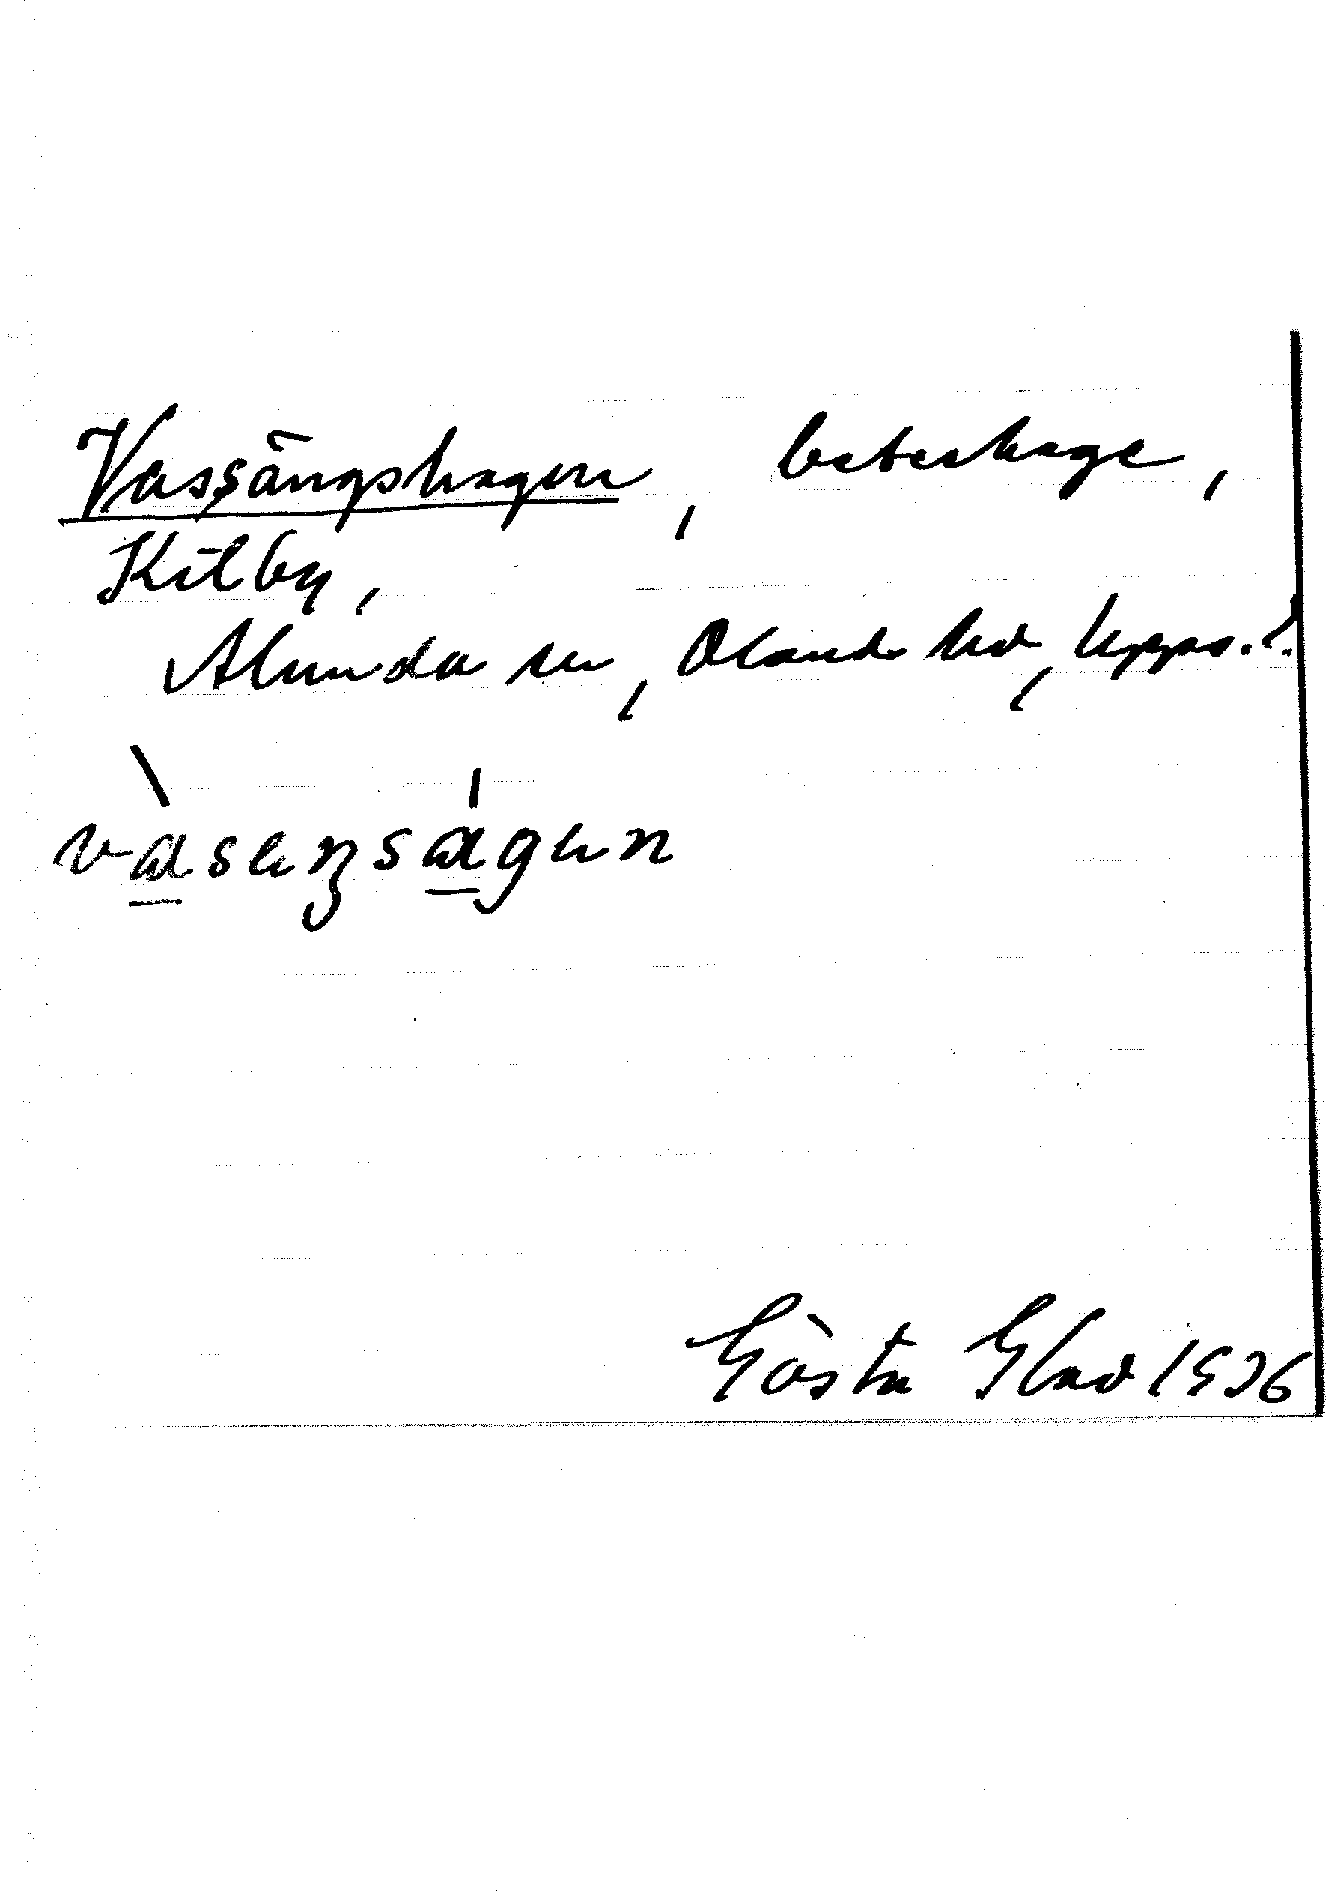 Vassängshagen, beteshage,
Kilby,
Alunda sn, Olands hd, Upps. l.
väsenʒsagen
Gösta Glad 1936